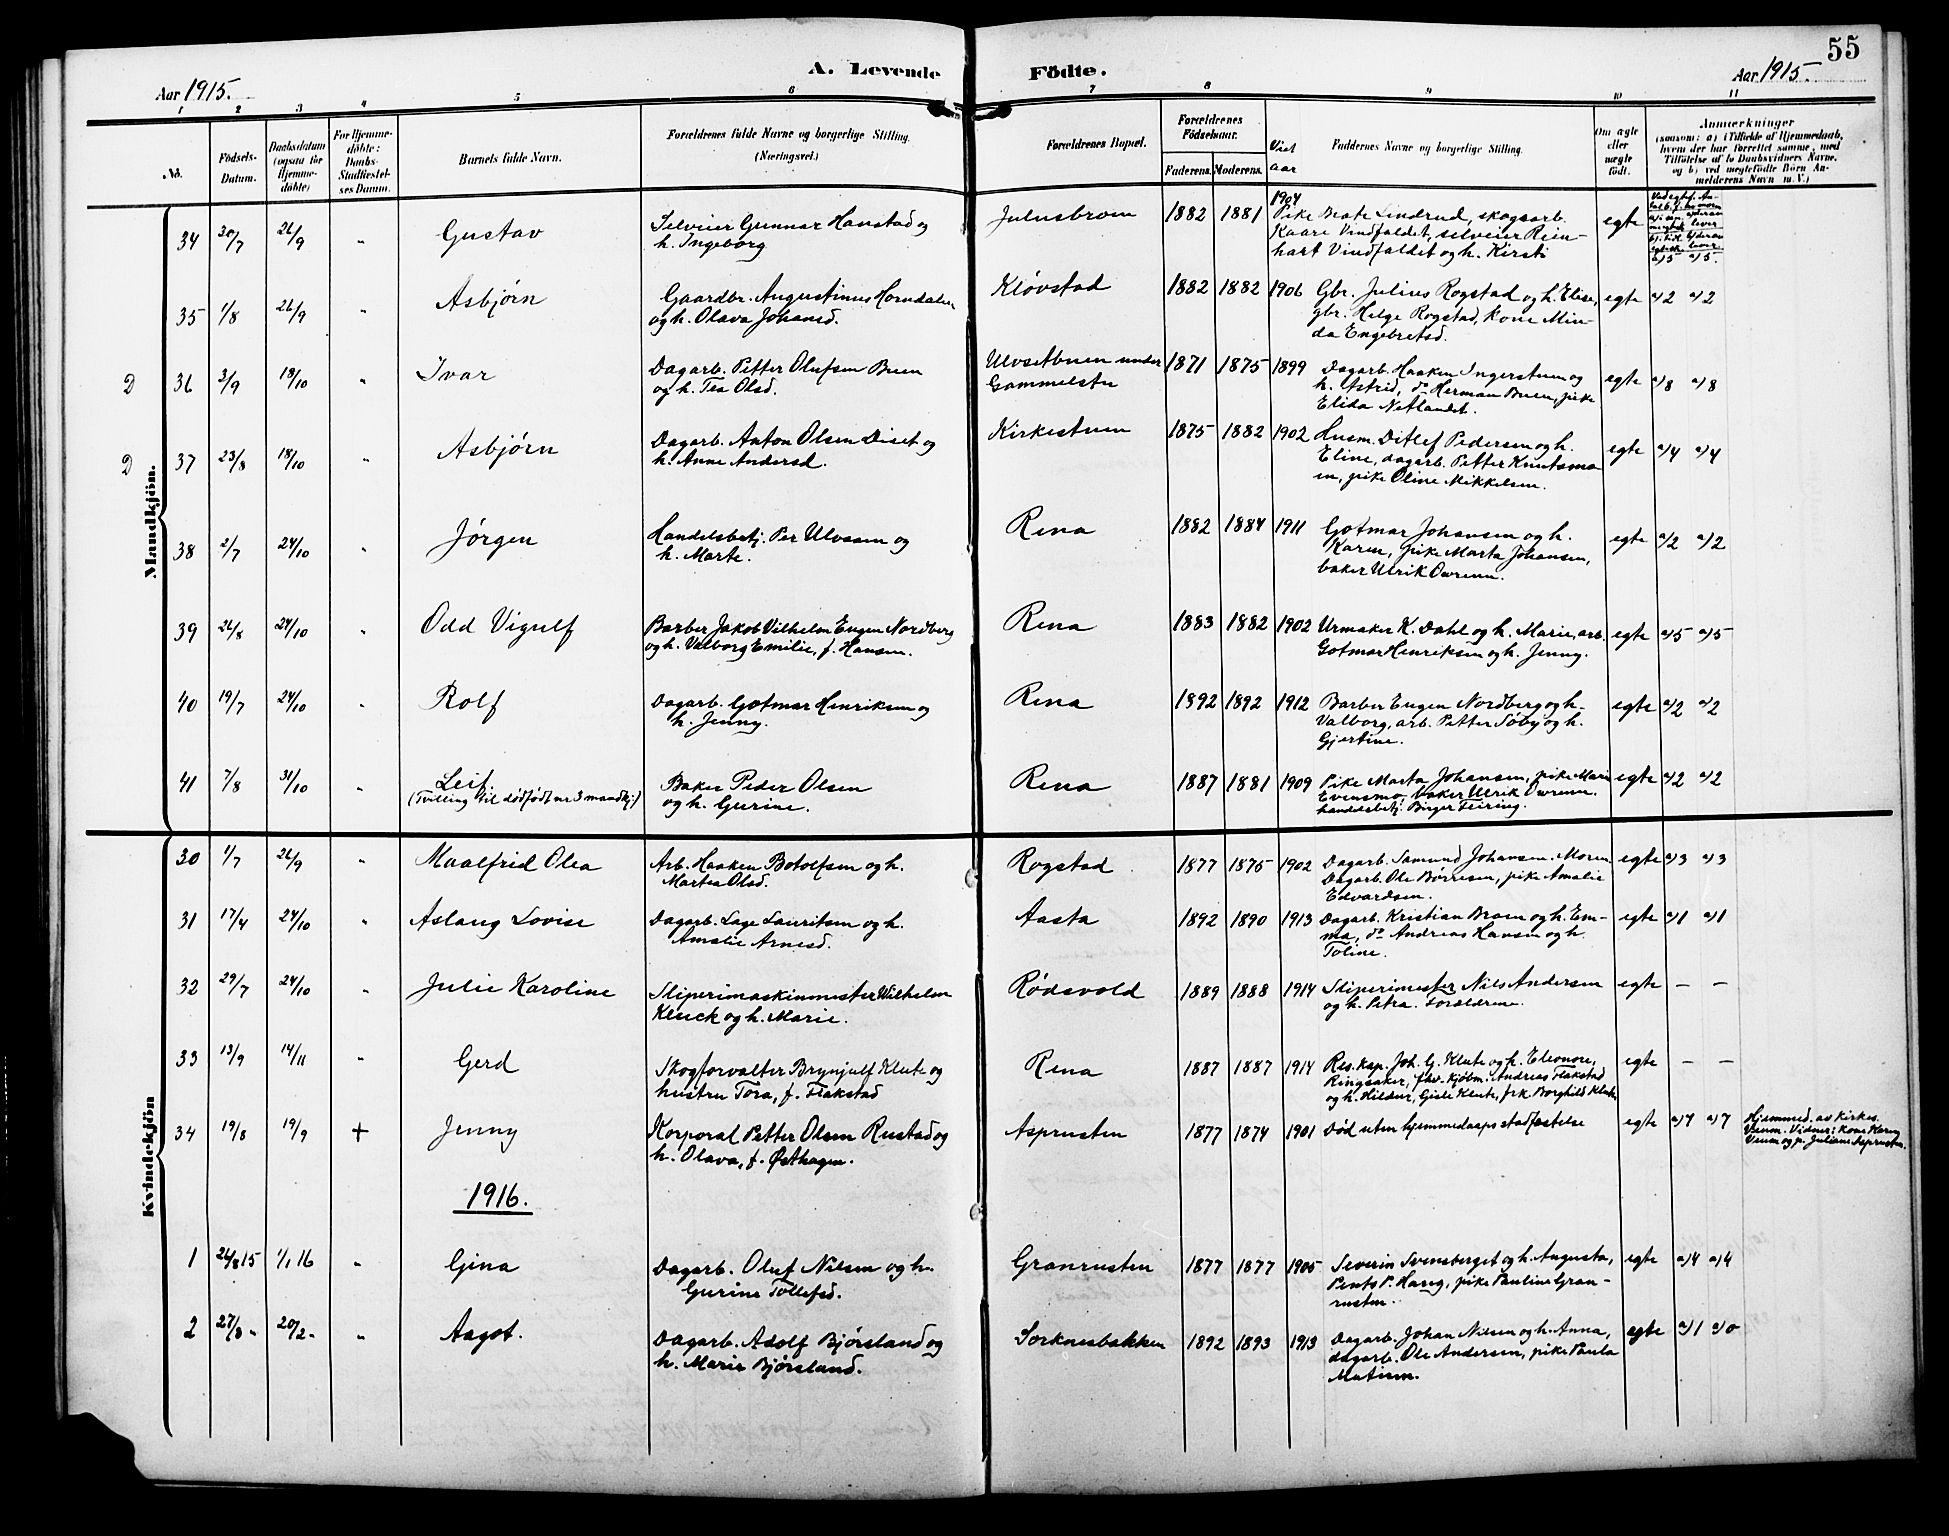 55
A. Levende Födte.
Aar 1915.
Aar 1915.
1 2 3 4 5 6 7 8 9 10 11
No.
Födsels-
Datum.
Daabsdatum
(ogsaa for
Hjemme-
döbte)
For Hjemme-
döbte:
Daabs-
Stadfæstel-
ses Datum.
Barnets fulde Navn.
Forældrenes fulde Navne og borgerlige Stilling.
(Næringsvei.)
Forældrenes Bopæl.
Forældrenes
Födselsaar.
Faderens. Moderens.
Viet
aar
Faddernes Navne og borgerlige Stilling.
Om ægte
eller
uægte
födt.
Anmærkninger
(saasom: a) i Tilfælde af Hjemmedaab,
hvem der har forrettet samme, med
Tilföielse af to Daabsvidners Navne,
og b) ved uegtefödte Börn An-
melderens Navn m. V.)
Mandkjön.
34 20/7 26/9 " Gustav
Selveier Gunnar Haustad og
h. Ingeborg
Julusbroen 1882 1881 1904
Pike Beate Lindrud, skogsarb.
Kaare Vindfaldet, selveier Rein-
hart Vindfaldet og h. Kirsti
egte
a/5 a/5.
35 1/8 26/9 " Asbjørn
Gaardbr. Augustinus Horndalen
og h. Olava Johansd.
Kløvstad 1882 1882 1906
Gbr. Julius Rogstad og h. Elise,
gbr. Helge Rogstad, kone Min-
da Engebretsd.
egte a/2 a/2
D 36 3/9 18/10 " Ivar
Dagarb. Petter Olufsen Buen
og h. Tea Olsd.
Ulvsetbuen under
Gammelstu
1871 1875 1899
Dagarb. Haaken Ingerstuen og
h. Astrid, do Herman Buen, pike
Elida Netlandet.
egte a/8 a/8
D 37 23/8 18/10 " Asbjørn
Dagarb. Anton Olsen Diset og
h. Anne Andersd.
Kirkestuen 1875 1882 1902
Husm. Ditlef Pedersen og h.
Eline, dagarb. Petter Knutsmo
en, pike Oline Mikkelsen.
egte a/4 a/4
38 2/7 24/10 " Jørgen
Handelsbetj. Per Ulvsson og
h. Marte.
Rena 1882 1884 1911
Gotmar Johansen og h.
Karen, pike Marta Johansen,
baker Ulrik Owrenn.
egte a/2 a/2
39 26/8 24/10 " Odd Vigulf
Barber Jakob Vilhelm Eugen Nordberg
og h. Valborg Emilie, f. Hansen.
Rena 1883 1882 1902
Urmaker K. Dahl og h. Marie, arb.
Gotmar Henriksen og h. Jenny.
egte a/5 a/5
40 19/7 24/10 " Rolf
Dagarb. Gotmar Henriksen og
h. Jenny.
Rena 1892 1892 1912
Barber Eugen Nordberg og h.
Valborg, arb. Petter Søby og h.
Gjertine.
egte a/2 a/2
41 7/8 31/10 " Leif.
(Tvilling til dødfødt nr 3 mandkj.)
Baker Peder Olsen
og h. Gurine.
Rena 1887 1881 1909
Pike Marta Johansen, pike Marie
Evensmo, baker Ulrik Owrenn.
handelsbetj. Birger Feiring.
egte a/2 a/2
Kvindekjön
30 1/7 26/9 " Maalfrid Olea
Arb. Haaken Botolfsen og h.
Martea Olsd.
Rogstad 1877 1875 1902
Dagarb. Samund Johansen. Moren
Dagarb. Ole Børresen, pike Amalie
Edvardsen.
egte a/3 a/3
31 17/4 24/10 " Aslaug Lovise
Dagarb. Lage Lauritsen og h.
Amalie Arnesd.
Aasta 1892 1890 1913
Dagarb. Kristian Braen og h. Em-
ma, do Andreas Hansen og h.
Toline.
egte a/1 a/1
32 29/7 24/10 " Julie Karoline
Sliperimaskinmester Wilhelm
Kluck og h. Marie.
Rødsvold 1889 1888 1914
Sliperimester Nils Andersen
og h. Petra. Forældrene.
egte — —
33 13/9 14/11 " Gerd
Skogforvalter Brynjulf Klute og
hustru Tora, f. Flakstad
Rena 1887 1887 1914
Res. kap. Joh. G. Klute og h. Eleonore,
Ringsaker, fhv. kjøbm. Andreas Flakstad
og h. Hildur, Gisle Klute, frk Borghild Klute
egte — —
34 19/8 19/9 + Jenny
Korporal Petter Olsen Rustad og
h. Olava, f. Østhagen.
Asprusten 1877 1874 1901
Død uten hjemmedaaps stadfæstelse
egte a/7 a/7
Hjemmed. av kirkes.
Veum. Vidner: Kone Karen
Veum og p. Juliane Asprusten.
1916.
1 24/8 15 1/1 16 " Gina
Dagarb. Oluf Nilsen og h.
Gurine Tollefsd.
Granrusten 1877 1877 1905
Severin Svensberget og h. Augusta,
Pents P. Haug, pike Pauline Gran-
rusten.
egte a/4 a/4
2 27/8 " 20/2 " " Aagot.
Dagarb. Adolf Bjørsland og
h. Marie Bjørsland.
Sorknesbakken 1892 1893 1913
Dagarb. Johan Nilsen og h. Anna,
dagarb. Ole Andersen, pike Paula
Matisen.
egte a/1 a/0